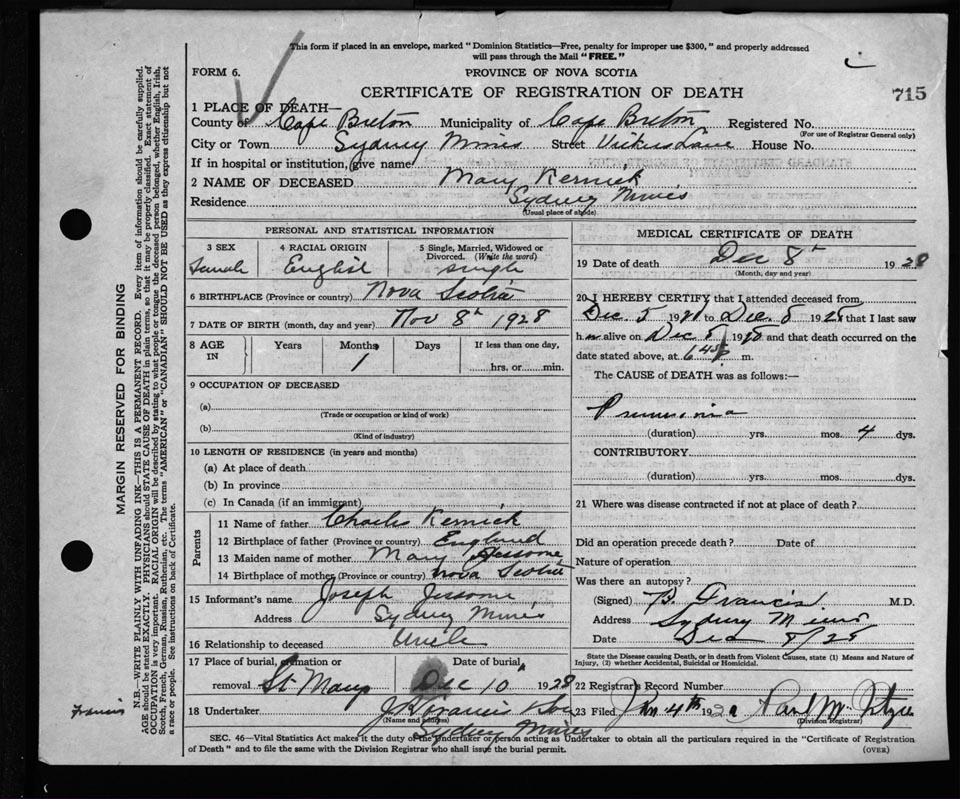 This form if placed in an envelope, marked "Dominion Statistics—Free, penalty for improper use $300," and properly addressed
will pass through the Mail "FREE."
FORM 6.
PROVINCE OF NOVA SCOTIA
CERTIFICATE OF REGISTRATION OF DEATH
715
1 PLACE OF DEATH—
County of Cape Breton Municipality of Cape Breton Registered No.
(For use of Registrar General only)
City or Town Sydney Mines Street Vickers Lane House No.
If in hospital or institution, give name
2 NAME OF DECEASED Mary Kernick
Residence Sydney Mines
(Usual place of abode)
PERSONAL AND STATISTICAL INFORMATION
3 SEX 4 RACIAL ORIGIN 5 Single, Married, Widowed or
Divorced. (Write the word)
Female English single
6 BIRTHPLACE (Province or country) Nova Scotia
7 DATE OF BIRTH (month, day and year) Nov 8th 1928
8 AGE IN Years Months Days If less than one day,
1 hrs. or min.
9 OCCUPATION OF DECEASED
(a)
(Trade or occupation or kind of work)
(b)
(Kind of industry)
10 LENGTH OF RESIDENCE (in years and months)
(a) At place of death
(b) In province
(c) In Canada (if an immigrant)
Parents
11 Name of father Charles Kernick
12 Birthplace of father (Province or country) England
13 Maiden name of mother Mary Jessome
14 Birthplace of mother (Province or country) Nova Scotia
15 Informant's name Joseph Jessome
Address Sydney Mines
16 Relationship to deceased Uncle
17 Place of burial, cremation or Date of burial
removal St Marys Dec 10 1928
18 Undertaker J Francis & Son
(Name and address)
Sydney Mines
MEDICAL CERTIFICATE OF DEATH
19 Date of death Dec 8th 1928
(Month, day and year)
20 I HEREBY CERTIFY that I attended deceased from
Dec. 5 1928 to Dec. 8 1928 that I last saw
h alive on Dec 8 1928 and that death occurred on the
date stated above, at 6 45 p m.
The CAUSE of DEATH was as follows:—
Pneumonia
(duration) yrs. mos. 4 dys.
CONTRIBUTORY
(duration) yrs. mos. dys.
21 Where was disease contracted if not at place of death?
Did an operation precede death? Date of
Nature of operation
Was there an autopsy?
(Signed) B. Francis M.D.
Address Sydney Mines
Date Dec 8/28
State the Disease causing Death, or in death from Violent Causes, state (1) Means and Nature of
Injury, (2) whether Accidental, Suicidal or Homicidal.
22 Registrar's Record Number
23 Filed Jan 4th 192
(Division Registrar)
SEC. 46—Vital Statistics Act makes it the duty of the Undertaker or person acting as Undertaker to obtain all the particulars required in the "Certificate of Registration
of Death" and to file the same with the Division Registrar who shall issue the burial permit.
(OVER)
MARGIN RESERVED FOR BINDING
N.B.—WRITE PLAINLY WITH UNFADING INK—THIS IS A PERMANENT RECORD. Every item of information should be carefully supplied.
AGE should be stated EXACTLY. PHYSICIANS should STATE CAUSE OF DEATH in plain terms, so that it may be properly classified. Exact statement of
OCCUPATION is very important. RACIAL ORIGIN will be described by stating to what people or tongue the deceased person belonged, whether English, Irish,
Scotch, French, German, Russian, Ruthenian, etc. The terms "AMERICAN" or "CANADIAN" SHOULD NOT BE USED as they express citizenship but not
a race or people. See instructions on back of Certificate.
Francis